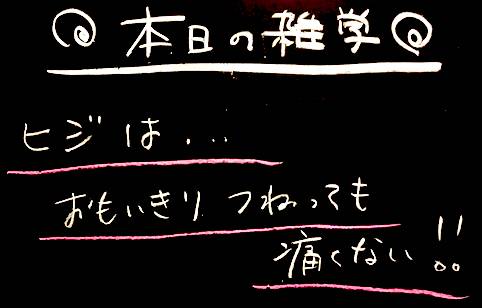 本日の雑学
ヒジは...
おもいきりつねっても
痛くない!!